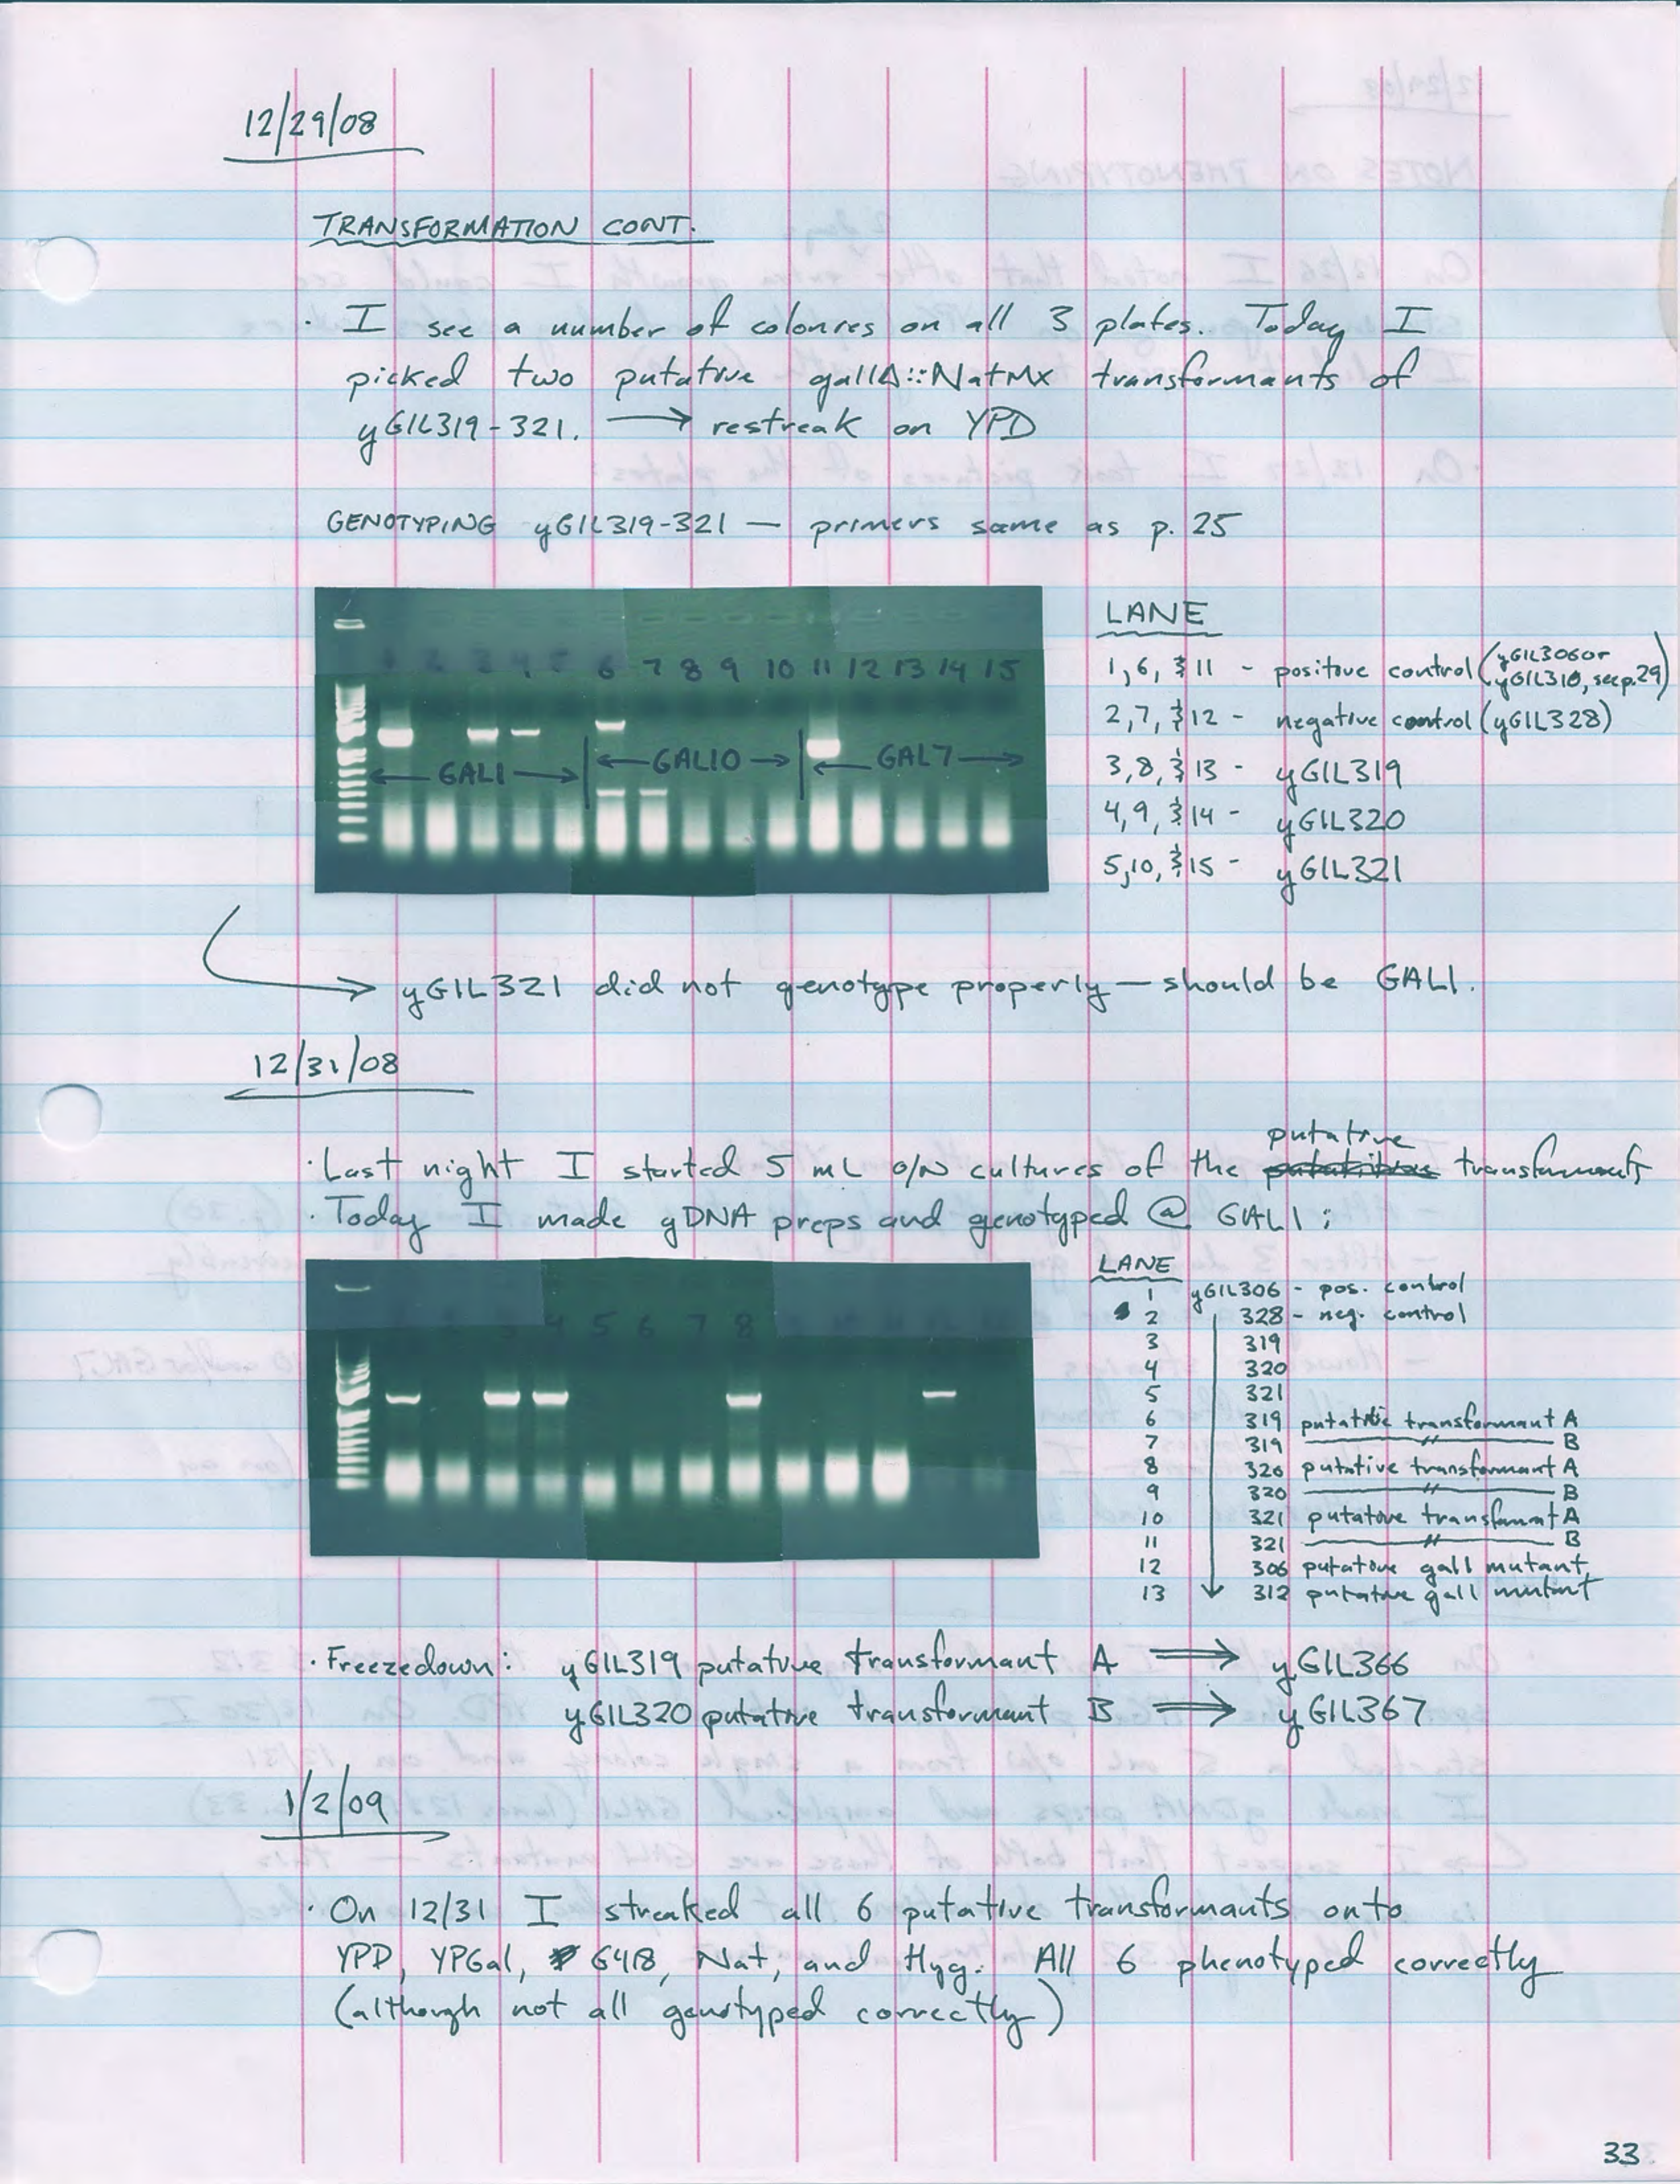 12/29/08
TRANSFORMATION CONT.
· I see a number of colonies on all 3 plates. Today I
picked two putative gal1Δ::NatMX transformants of
yGIL319-321. → restreak on YPD
GENOTYPING yGIL319-321 — primers same as p. 25
1 2 3 4 5 6 7 8 9 10 11 12 13 14 15
← GAL1 → ← GAL10 → ← GAL7 →
LANE
1, 6, & 11 - positive control (yGIL306 or yGIL310, see p. 29)
2, 7, & 12 - negative control (yGIL328)
3, 8, & 13 - yGIL319
4, 9, & 14 - yGIL320
5, 10, & 15 - yGIL321
→ yGIL321 did not genotype properly — should be GAL1.
12/31/08
· Last night I started 5 mL o/N cultures of the putative transformants
· Today I made gDNA preps and genotyped @ GAL1:
3 4 5 6 7 8
LANE
1 yGIL306 - pos. control
2 328 - neg. control
3 319
4 320
5 321
6 319 putative transformant A
7 319 — " — B
8 320 putative transformant A
9 320 — " — B
10 321 putative transformant A
11 321 — " — B
12 306 putative gal1 mutant
13 312 putative gal1 mutant
· Freezedown: yGIL319 putative transformant A ⇒ yGIL366
yGIL320 putative transformant B ⇒ yGIL367
1/2/09
· On 12/31 I streaked all 6 putative transformants onto
YPD, YPGal, G418, Nat, and Hyg. All 6 phenotyped correctly
(although not all genotyped correctly)
33